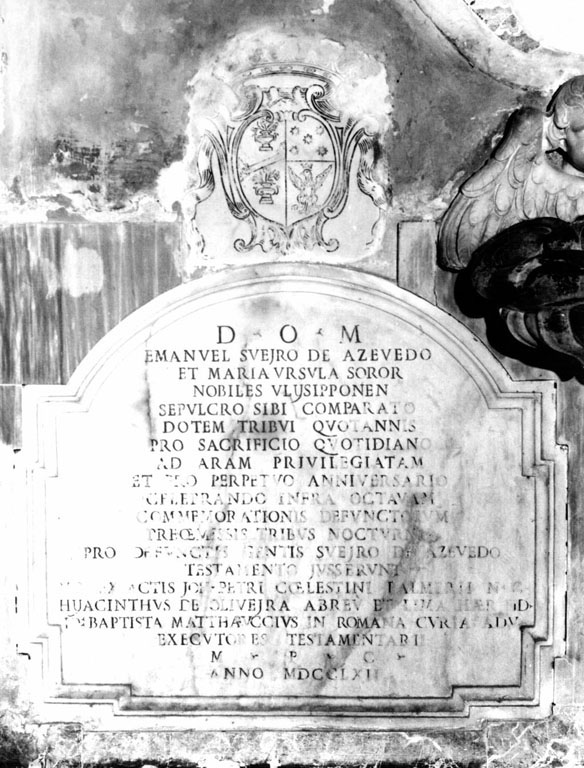 D · O · M
EMANVEL SVEJRO DE AZEVEDO
ET MARIA VRSVLA SOROR
NOBILES VLYSIPPONEN
SEPVLCRO SIBI COMPARATO
DOTEM TRIBVI QVOTANNIS
PRO SACRIFICIO QVOTIDIANO
AD ARAM PRIVILEGIATAM
ET PRO PERPETVO ANNIVERSARIO
CELEBRANDO INFRA OCTAVAM
COMMEMORATIONIS DEFVNCTORVM
PRÆMISSIS TRIBUS NOCTURNIS
PRO DEFVNCTIS GENTIS SVEJRO DE AZEVEDO
TESTAMENTO JVSSERVNT
ACTIS PETRI CŒLESTINI PALMERII
HUACINTHVS DE OLIVEJRA ABREV ET LIMA
BAPTISTA MATTHÆVCCIVS IN ROMANA CVRIA ADV
EXECVTORES TESTAMENTARII
M · P · C ·
ANNO MDCCLXII